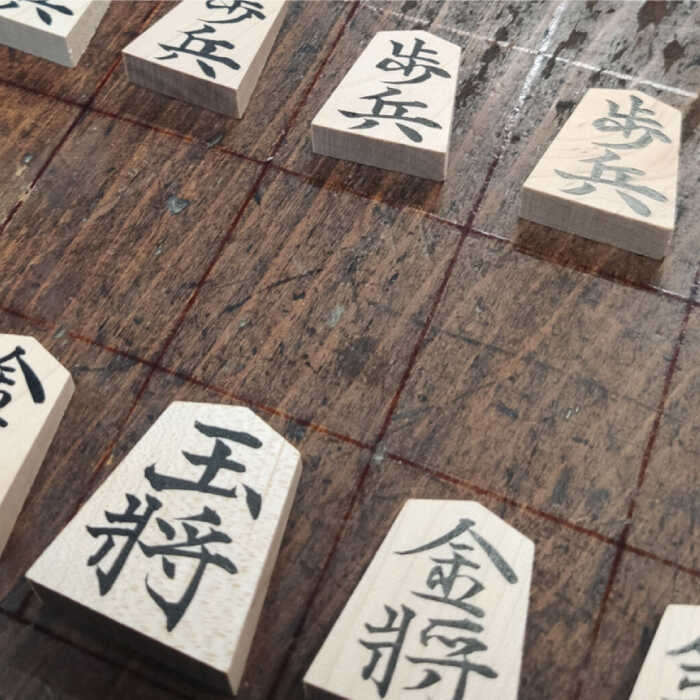 歩兵
歩兵
歩兵
玉将
金将